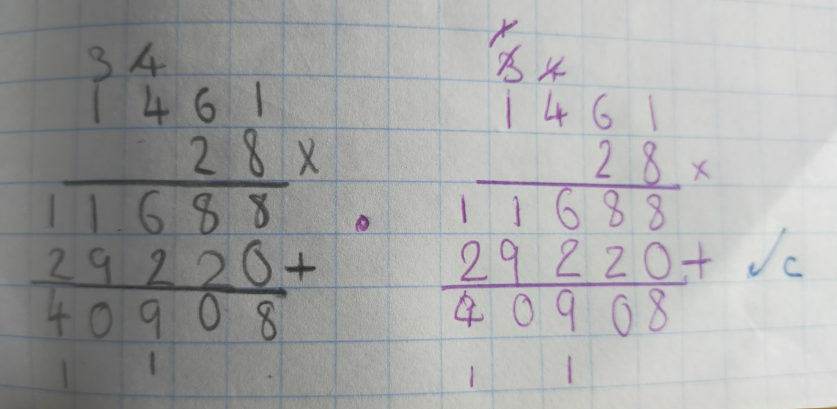 3 4
1 4 6 1
2 8 x
1 1 6 8 8
2 9 2 2 0 +
4 0 9 0 8
1 1
3 4
1 4 6 1
2 8 x
1 1 6 8 8
2 9 2 2 0 + ✓c
4 0 9 0 8
1 1